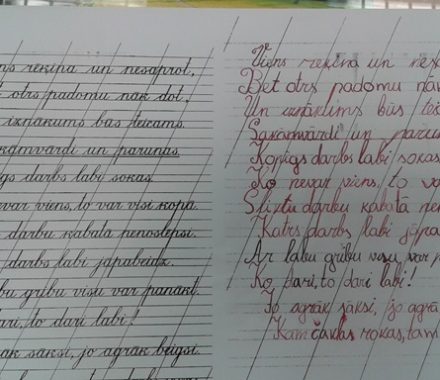 ns rēķina un nesaprot,
otrs padomu nāk dot,
iznākums būs teicams.
kāmvārdi un parunas
gs darbs labi sokas.
var viens, to var visi kopā.
darbu kabatā nenoslēpsi.
darbs labi jāpabeidz.
bu gribu visu var panākt.
ari, to dari labi!
āk sāksi, jo agrāk beigsi.
Viens rēķina un nesa
Bet otrs padomu nāv
Un iznākums būs tei
Sakāmvārdi un parun
Kopīgs darbs labi sokas
Ko nevar viens, to va
Sliktu darbu kabatā nen
Katrs darbs labi jāpa
Ar labu gribu visu var p
Ko dari, to dari labi!
Jo agrāk sāksi, jo agrā
Kam čaklas rokas, tam